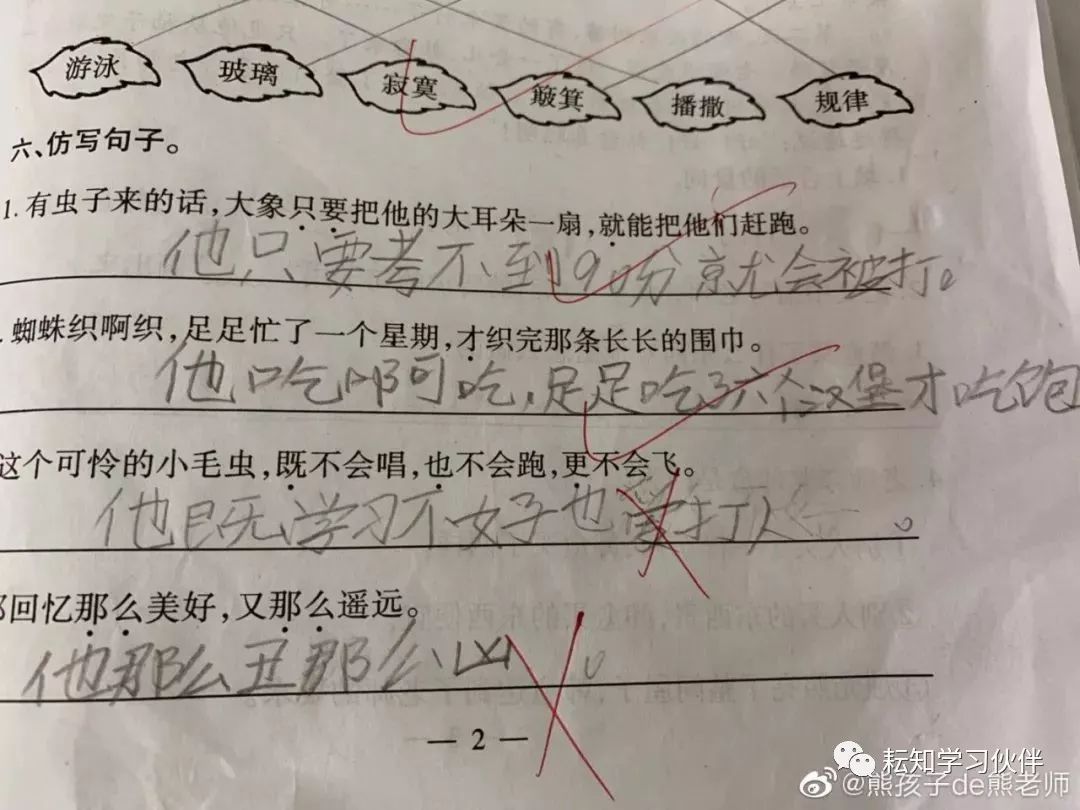 游泳 玻璃 寂寞 簸箕 播撒 规律
六、仿写句子。
1. 有虫子来的话，大象只要把他的大耳朵一扇，就能把他们赶跑。
他只要考不到90份就会被打。
. 蜘蛛织啊织，足足忙了一个星期，才织完那条长长的围巾。
他吃啊吃，足足吃了六个汉堡才吃饱
这个可怜的小毛虫，既不会唱，也不会跑，更不会飞。
他既学习不好也爱打人。
回忆那么美好，又那么遥远。
他那么丑那么凶。
— 2 —
耘知学习伙伴
@熊孩子de熊老师